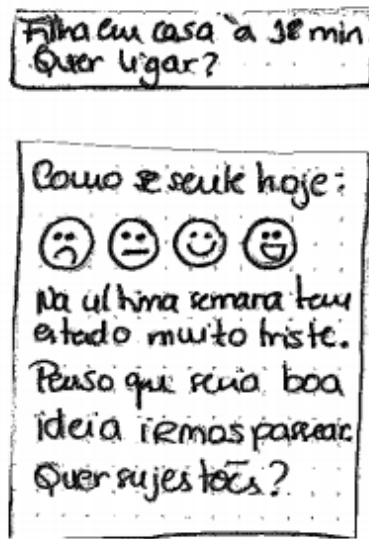 Filha em casa à 38 min
Quer ligar?
Como se sente hoje:
Na ultima semana tem
estado muito triste.
Penso que seria boa
ideia irmos passear
Quer sujestões?